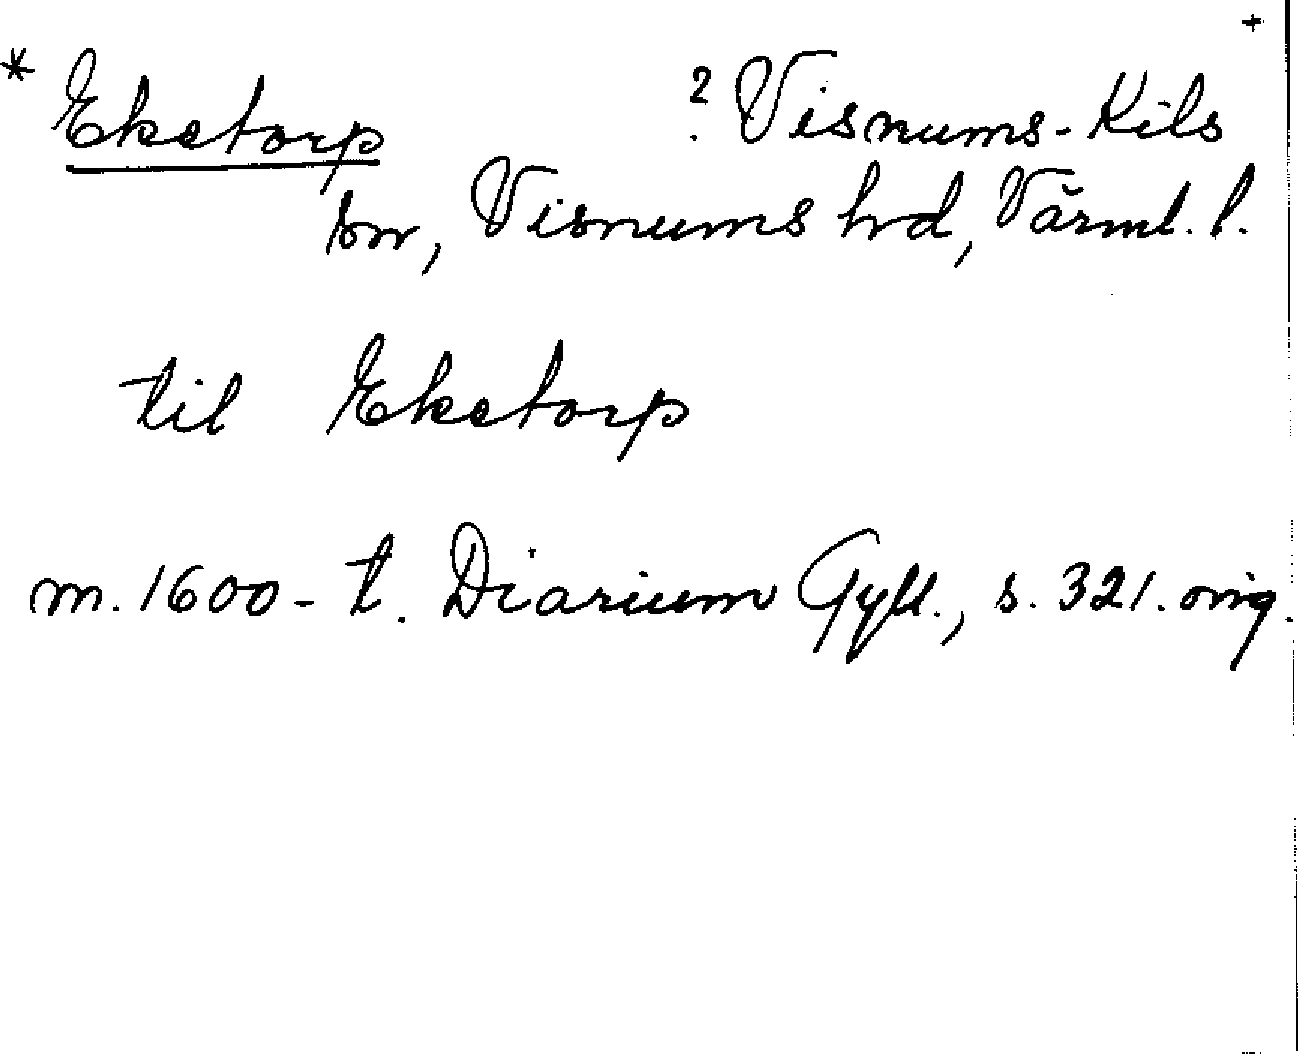 +
* Eketorp ? Visnums-Kils
sn, Visnums hd, Värml. l.
til Eketorp
m. 1600-t. Diarium Gyll., s. 321. orig.